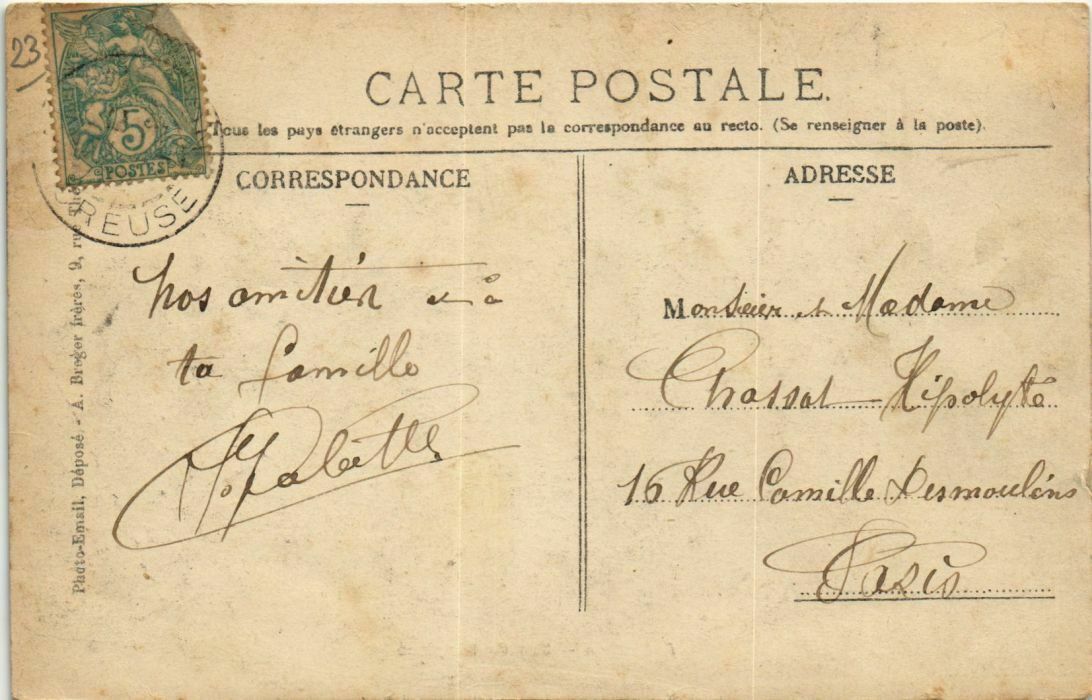 23
5c
POSTES
CREUSE
CARTE POSTALE.
Tous les pays étrangers n'acceptent pas la correspondance au recto. (Se renseigner à la poste).
CORRESPONDANCE
nos amitiés et à
ta famille
ADRESSE
Monsieur et Madame
Chassat Hipolyte
16 Rue Camille Desmoulins
Paris
Photo-Email, Déposé - A. Breger frères, 9, rue